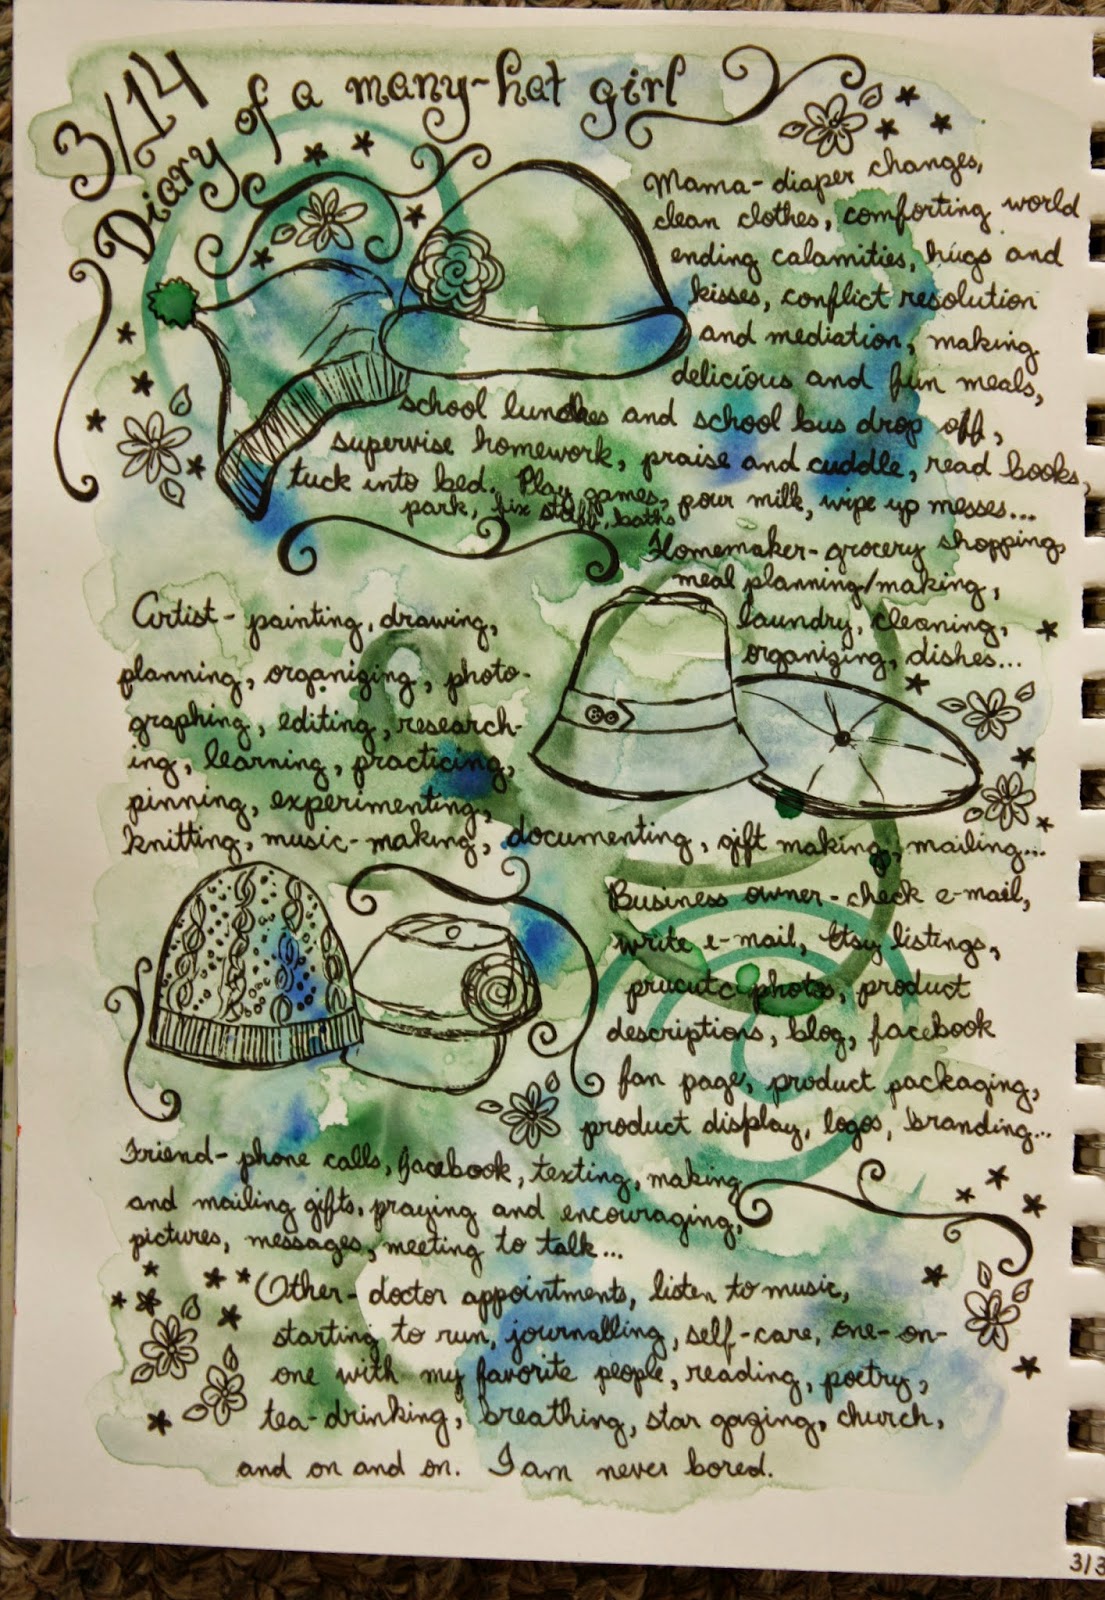 3/14
Diary of a many-hat girl
Mama - diaper changes,
clean clothes, comforting world
ending calamities, hugs and
kisses, conflict resolution
and mediation, making
delicious and fun meals,
school lunches and school bus drop off,
supervise homework, praise and cuddle, read books,
tuck into bed. Play games, pour milk, wipe up messes...
park, fix stuff, baths
Homemaker - grocery shopping,
meal planning/making,
laundry, cleaning,
organizing, dishes...
Artist - painting, drawing,
planning, organizing, photo-
graphing, editing, research-
ing, learning, practicing,
pinning, experimenting,
knitting, music-making, documenting, gift making, mailing...
Business owner - check e-mail,
write e-mail, Etsy listings,
photos, product
descriptions, blog, facebook
fan page, product packaging,
product display, logos, branding...
Friend - phone calls, facebook, texting, making
and mailing gifts, praying and encouraging,
pictures, messages, meeting to talk...
Other - doctor appointments, listen to music,
starting to run, journalling, self-care, one-on-
one with my favorite people, reading, poetry,
tea-drinking, breathing, star gazing, church,
and on and on. I am never bored.